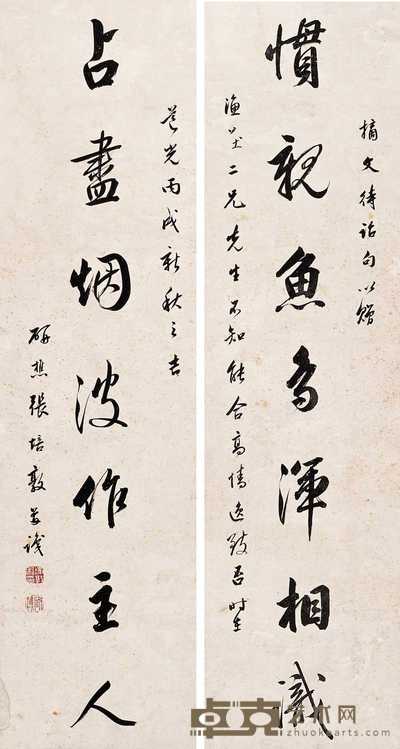 摘文待詔句以贈
慣親魚鳥渾相識
漁 二兄先生不知能合高情逸致否时在
道光丙戌新秋之吉
占盡烟波作主人
研樵張培敦并識
卓克艺术网
zhuokearts.com